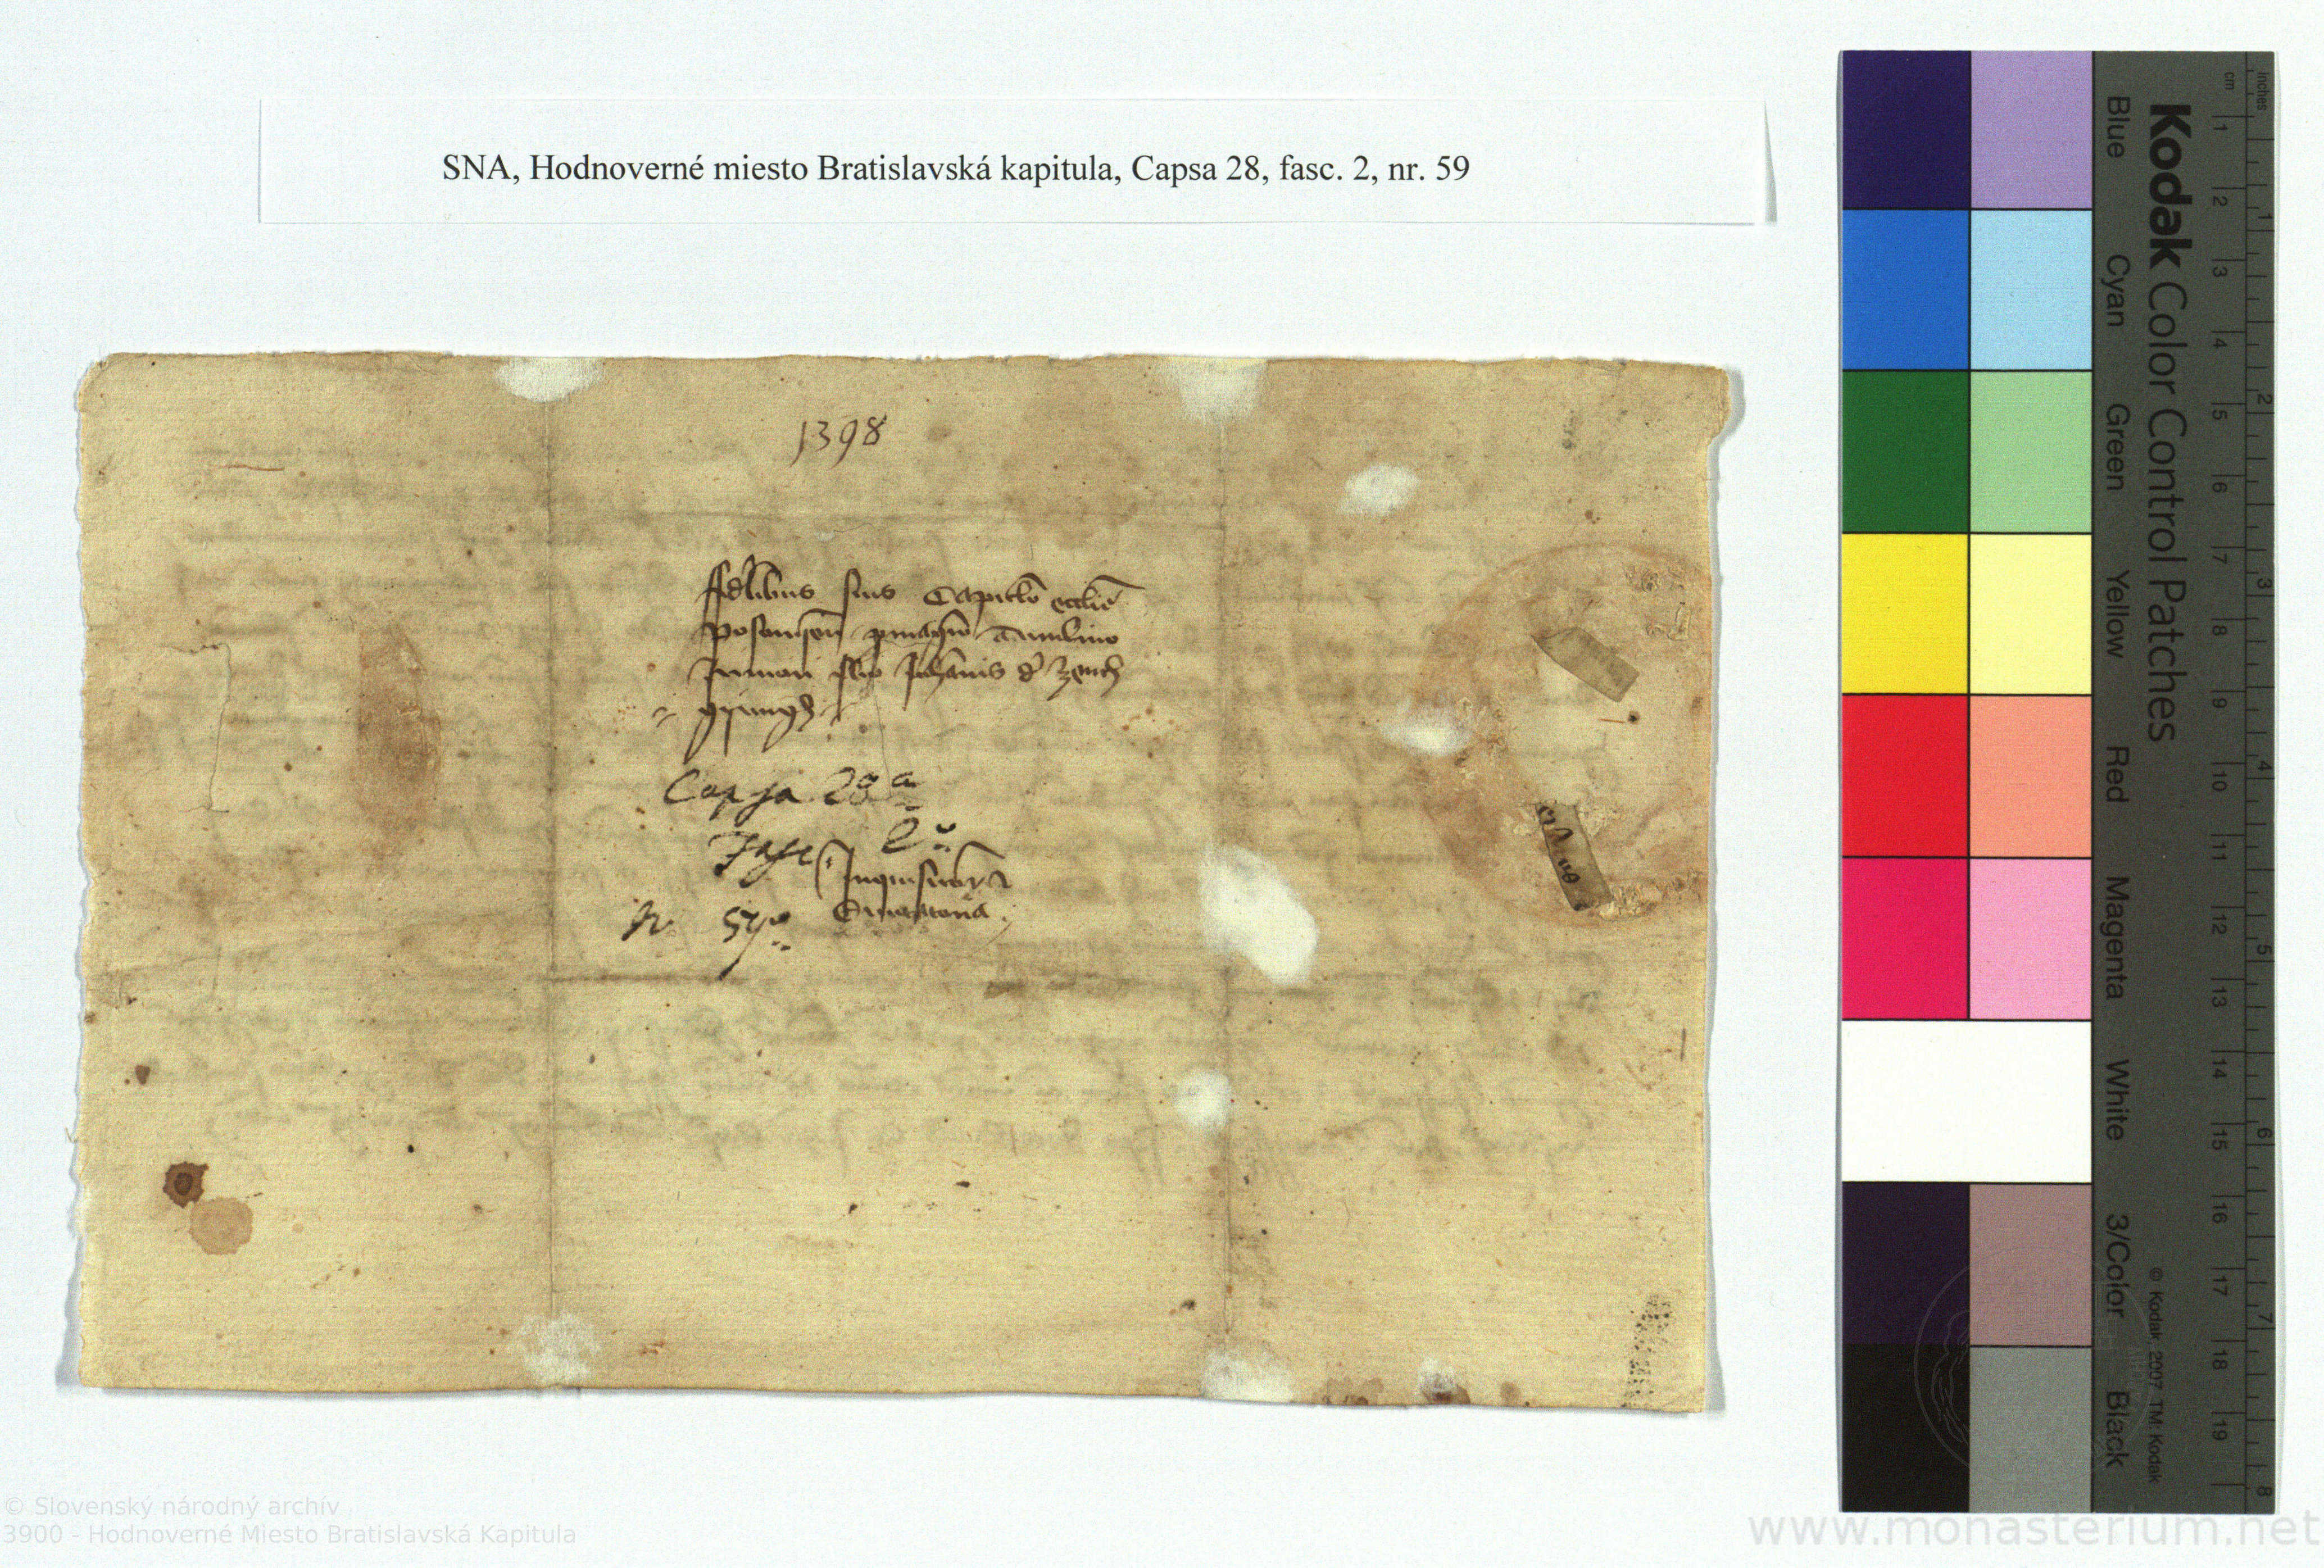 SNA, Hodnoverné miesto Bratislavská kapitula, Capsa 28, fasc. 2, nr. 59
1398
ffidelibus suis Capitlo ecclie
Posonien
filio Johannis de
Capsa 28a
Fasc. 2us
Inquisitoria
N. 59us
Kodak Color Control Patches
Blue Cyan Green Yellow Red Magenta White 3/Color Black
cm 1 2 3 4 5 6 7 8 9 10 11 12 13 14 15 16 17 18 19
inches 1 2 3 4 5 6 7 8
© Kodak, 2007 TM: Kodak
© Slovenský národný archív
3900 - Hodnoverné Miesto Bratislavská Kapitula
www.monasterium.net